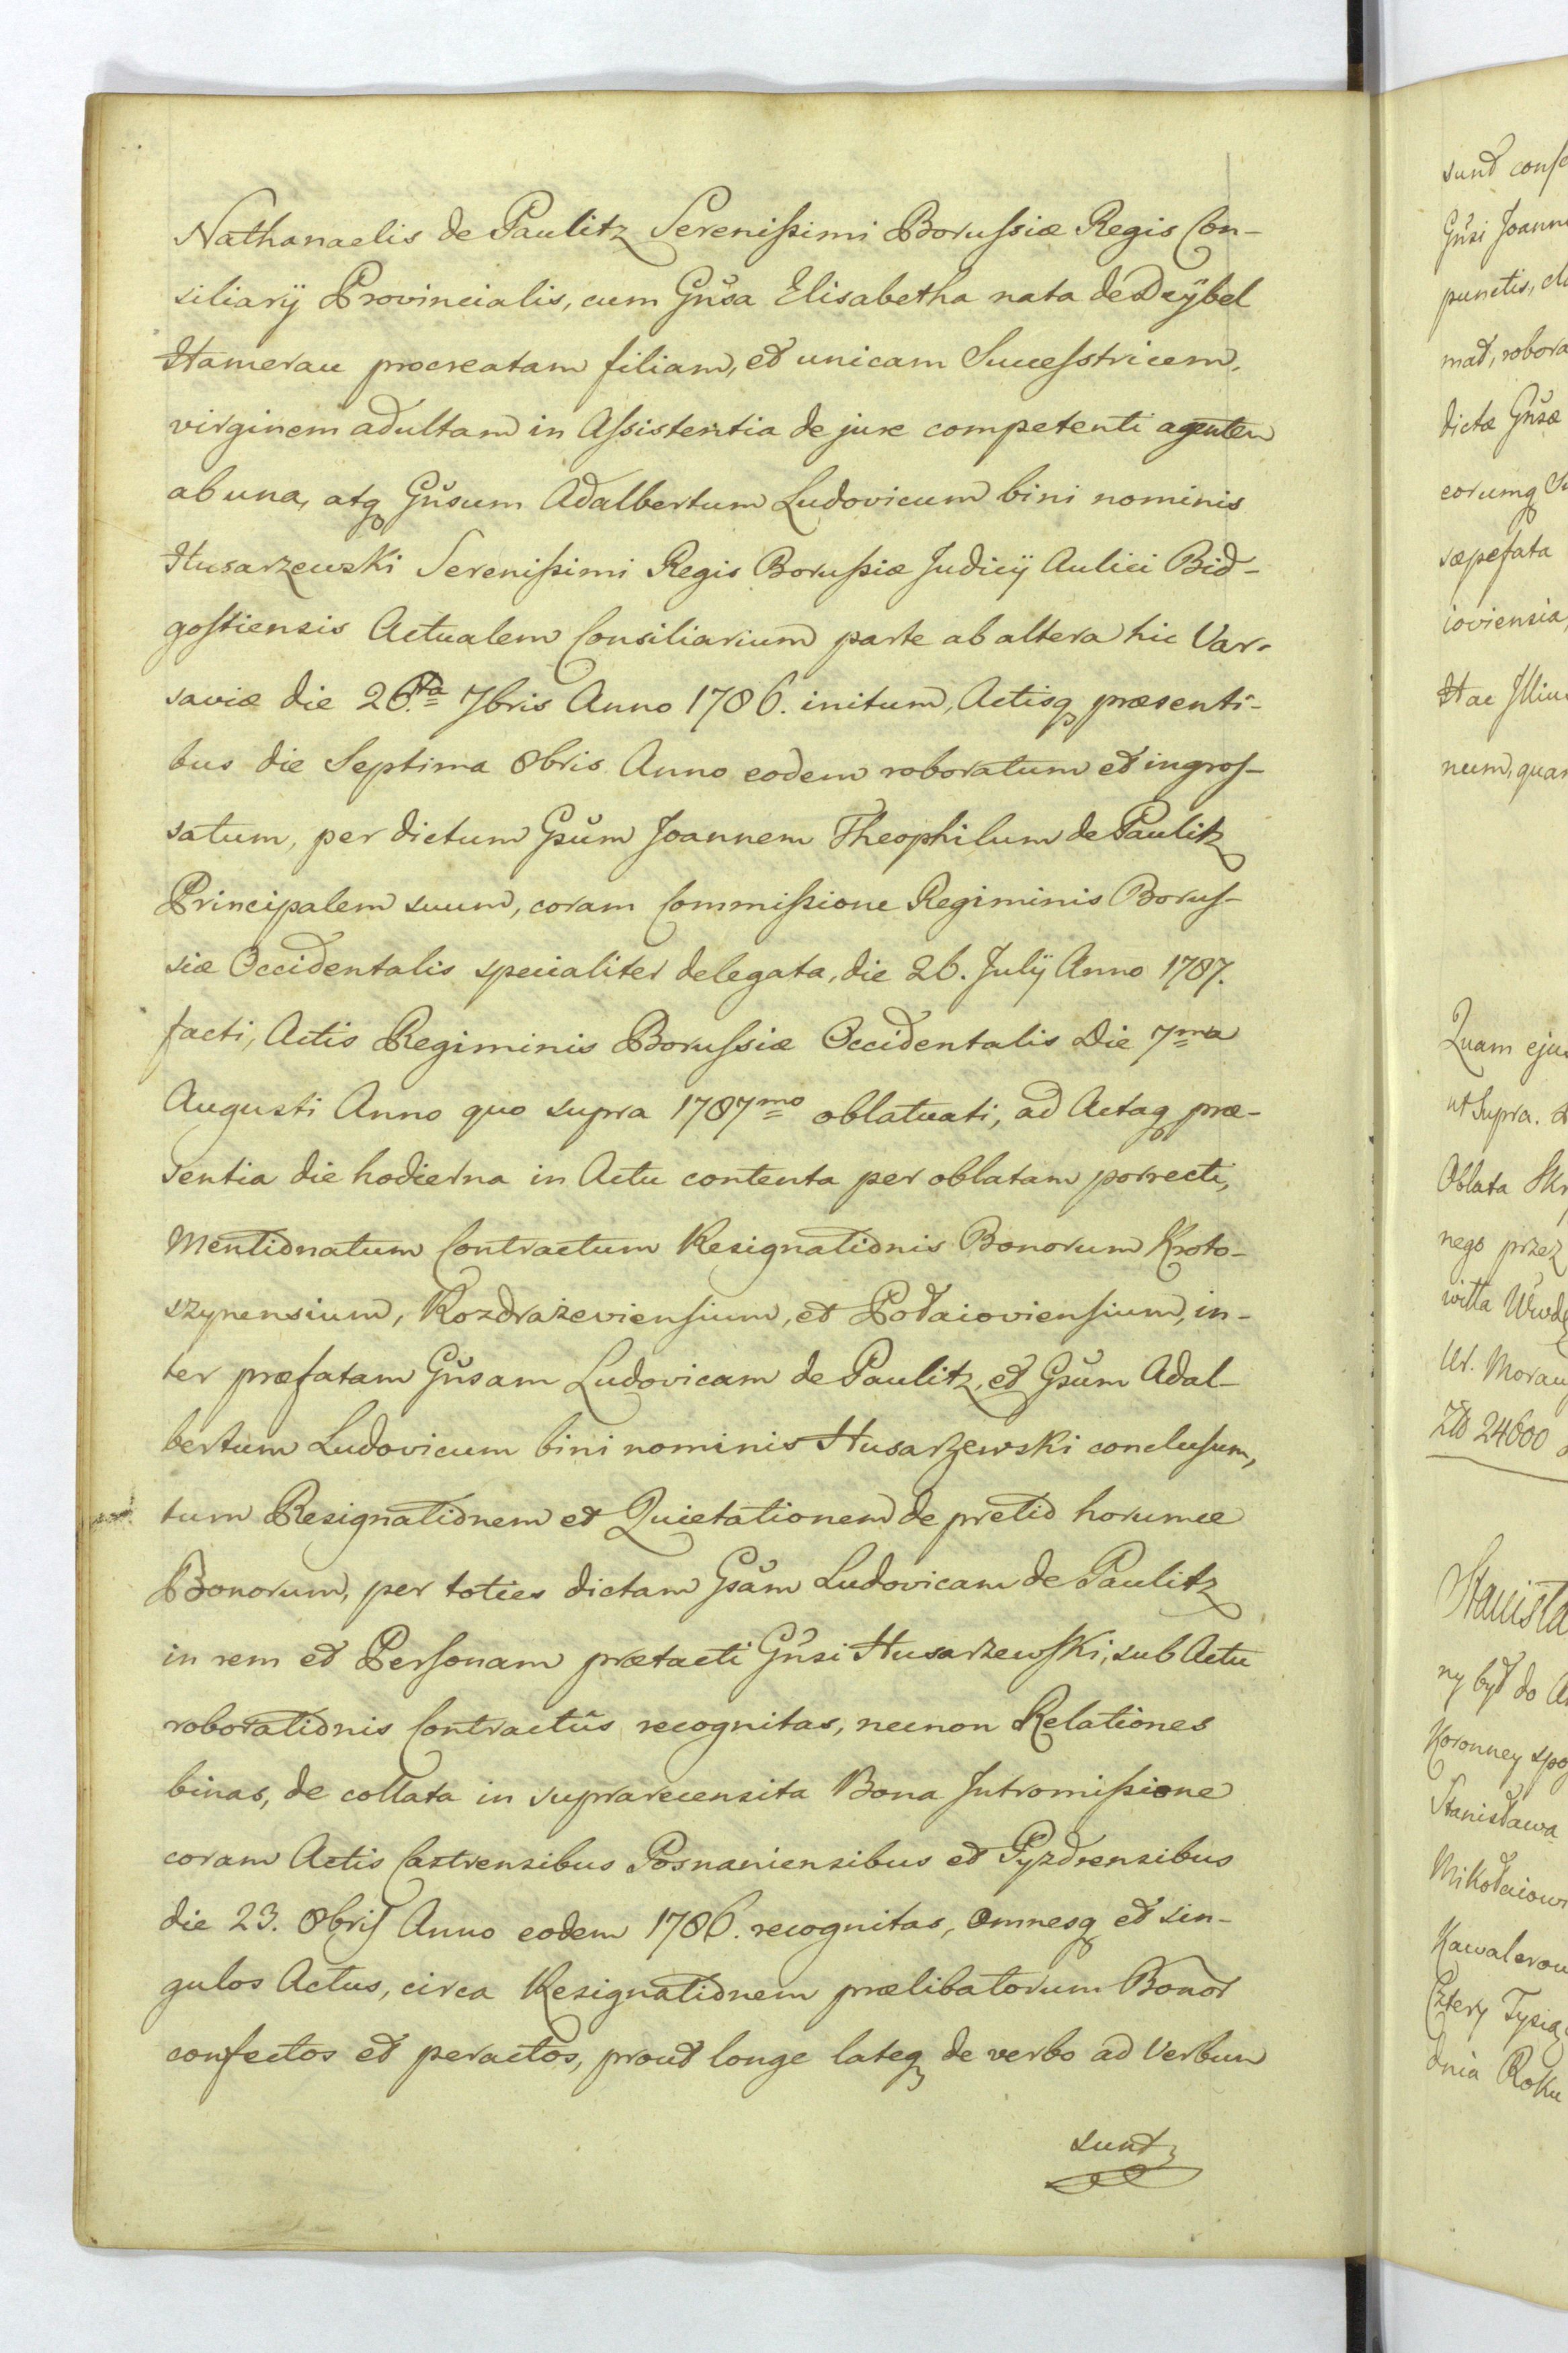 Nathanaelis de Paulitz Serenißimi Borußiæ Regis Con-
siliarij Provincialis, cum Gñsa Elisabetha nata de Deÿbel
Hamerau procreatam filiam, et unicam Successtricem,
virginem adultam in Assistentia de jure competenti agentem
ab una, atq Gñsum Adalbertum Ludovicum bini nominis
Husarzewski Serenißimi Regis Borußiæ Judicij Aulici Bid-
gostiensis Actualem Consiliarium parte ab altera hic Var-
saviæ die 26.ta 7bris Anno 1786. initum, Actisq præsenti-
bus die Septima 8bris Anno eodem roboratum et ingros-
satum, per dictum Gsum Joannem Theophilum de Paulitz
Principalem suum, coram Commißione Regiminis Borus-
siæ Occidentalis specialiter delegata, die 26. Julij Anno 1787.
facti, Actis Regiminis Borussiæ Occidentalis Die 7ma
Augusti Anno quo supra 1787mo oblatuati, ad Actaq præ-
sentia die hodierna in Actu contenta per oblatam porrecti,
Mentionatum Contractum Resignationis Bonorum Kroto-
szynensium, Rozdrażeviensium, et Połaioviensium, in-
ter præfatam Gñsam Ludovicam de Paulitz, et Gsum Adal-
bertum Ludovicum bini nominis Husarzewski conclusum,
tum Resignationem et Quietationem de pretio horumce
Bonorum, per toties dictam Gsam Ludovicam de Paulitz
in rem et Personam prætacti Gñsi Husarzewski, sub Actu
roborationis Contractûs recognitas, necnon Relationes
binas, de collata in suprarecensita Bona Intromißione
coram Actis Castrensibus Posnaniensibus et Pyzdrensibus
die 23. 8bris Anno eodem 1786. recognitas, omnesq et sin-
gulos Actus, circa Resignationem prælibatorum Bonor
confectos et peractos, prout longe lateq de verbo ad Verbum
sunt
sunt
Gñsi
punctis,
dictæ Gñsæ
eorumq
sæpefata
ioviensia,
Hac
Quam
ut Supra.
Oblata
nego przez
Ur.
Złł 24600
ny był do
Koronney
Stanisława
Cztery
dnia Roku